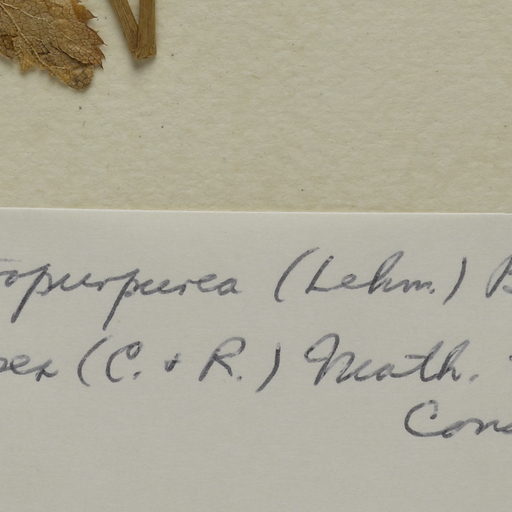 topurpurea (Lehm.) B
(C. & R.) Math.
Cons